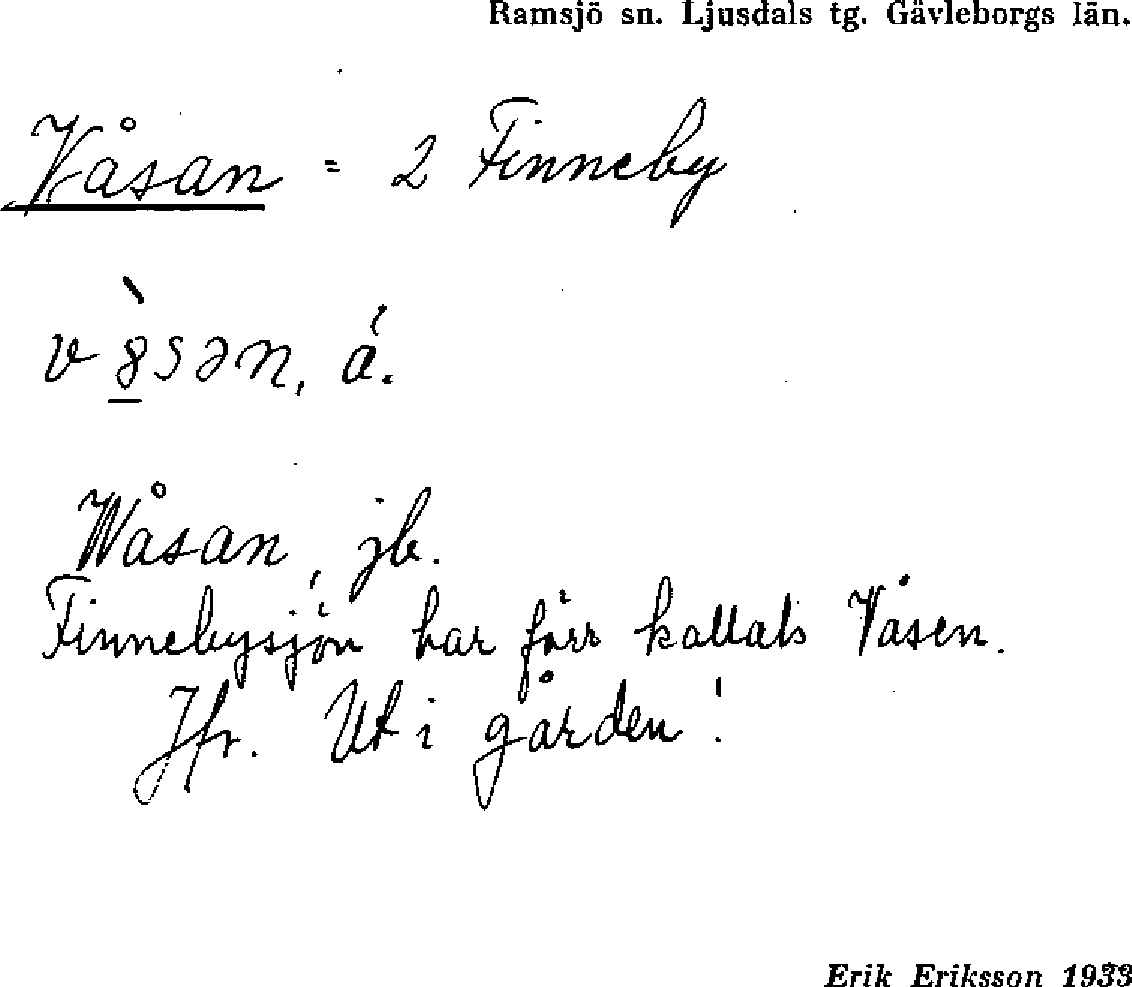 Ramsjö sn. Ljusdals tg. Gävleborgs län.
Våsan = 2 Finneby
v8̲̀sən, á.
Wåsan, jb.
Finnebysjön har förr kallats Våsen.
Jfr. Ut i gården!
Erik Eriksson 1933